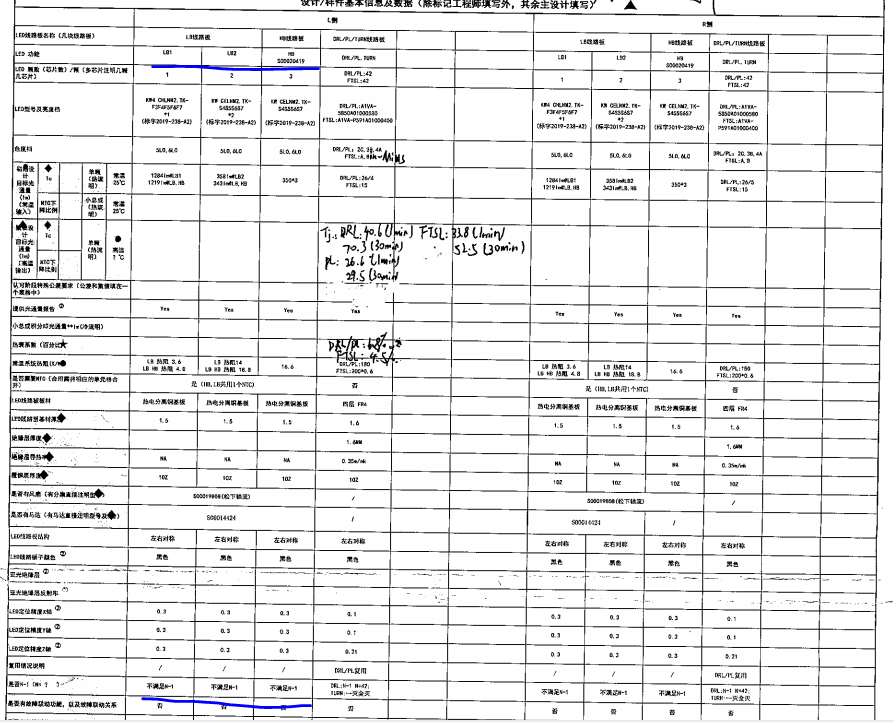 设计/样件基本信息及数据（除标记工程师填写外，其余主设计填写）
L侧 R侧
LED线路板名称（几块线路板） LB线路板 HB线路板 DRL/PL/TURN线路板 LB线路板 HB线路板 DRL/PL/TURN线路板
LED 功能 LB1 LB2 HB S00020419 DRL/PL,TURN LB1 LB2 HB S00020419 DRL/PL,TURN
LED 颗数（芯片数）/颗（多芯片注明几颗几芯片） 1 2 3 DRL/PL:42 FTSL:42 1 2 3 DRL/PL:42 FTSL:42
LED型号及亮度档
*1
(标字2019-238-A2) (标字2019-238-A2) (标字2019-238-A2) (标字2019-238-A2) (标字2019-238-A2) (标字2019-238-A2)
色度档 5L0,6L0 5L0,6L0 5L0,6L0 DRL/PL: 2C,3B,4A 5L0,6L0 5L0,6L0 5L0,6L0 DRL/PL: 2C,3B,4A FTSL:A,B
单颗（热流明） 常温25℃ 1284lm@LB1 1219lm@LB,HB 358lm@LB2 343lm@LB,HB 350*3 DRL/PL:26/4 FTSL:15 1284lm@LB1 1219lm@LB,HB 358lm@LB2 343lm@LB,HB 350*3 DRL/PL:26/5 FTSL:15
NTC下降比例 小总成（热流明） 常温25℃
单颗（热流明） 高温？℃
NTC下降比例
Tj: DRL: 40.6 (1min) FTSL: 33.8 (1min)
70.3 (30min) 52.5 (30min)
PL: 26.6 (1min)
29.5 (30min)
认可阶段特殊公差要求（公差和数值填在一个表格中）
提供光通量报告② Yes Yes Yes Yes Yes Yes Yes Yes
小总成积分球光通量**lm(冷流明)
热衰系数（百分比）
DRL/PL: 6.8%
FTSL: 4.5%
常温系统热阻(K/W) LB 热阻 3.6 LB HB 热阻 4.8 LB 热阻14 LB HB 热阻 18.8 16.6 DRL/PL:180 FTSL:300*0.6 LB 热阻 3.6 LB HB 热阻 4.8 LB 热阻14 LB HB 热阻 18.8 16.6 DRL/PL:180 FTSL:200*0.6
是否需要NTC（合用需将相应的单元格合并） 是（HB,LB共用1个NTC） 否 是（HB,LB共用1个NTC） 否
LED线路板板材 热电分离铜基板 热电分离铜基板 热电分离铜基板 四层 FR4 热电分离铜基板 热电分离铜基板 热电分离铜基板 四层 FR4
LED线路板基材厚度 1.5 1.5 1.5 1.6 1.5 1.5 1.5 1.6
绝缘层厚度 1.6MM 1.6MM
绝缘层导热率 NA NA NA 0.35w/mk NA NA NA 0.35w/mk
覆铜板厚度 1OZ 1OZ 1OZ 1OZ 1OZ 1OZ 1OZ 1OZ
是否有风扇（有风扇直接注明型号） S00019808(松下轴流) / S00019808(松下轴流) /
是否有马达（有马达直接注明型号） S00014424 / S00014424 / /
LED线路板结构 左右对称 左右对称 左右对称 左右对称 左右对称 左右对称 左右对称 左右对称
LED线路板子颜色② 黑色 黑色 黑色 黑色 黑色 黑色 黑色 黑色
亚光绝缘层②
亚光绝缘层反射率
LED定位精度X轴② 0.3 0.3 0.3 0.1 0.3 0.3 0.3 0.1
LED定位精度Y轴② 0.3 0.3 0.3 0.1 0.3 0.3 0.3 0.1
LED定位精度Z轴② 0.3 0.3 0.3 0.21 0.3 0.3 0.3 0.21
复用情况说明 / / / DRL/PL复用 / / / DRL/PL复用
是否N-1 不满足N-1 不满足N-1 不满足N-1 DRL:N-1 N=42; TURN:一灭全灭 不满足N-1 不满足N-1 不满足N-1 DRL:N-1 N=42; TURN:一灭全灭
是否有故障联动功能，以及故障联动关系 否 否 否 否 否 否 否 否